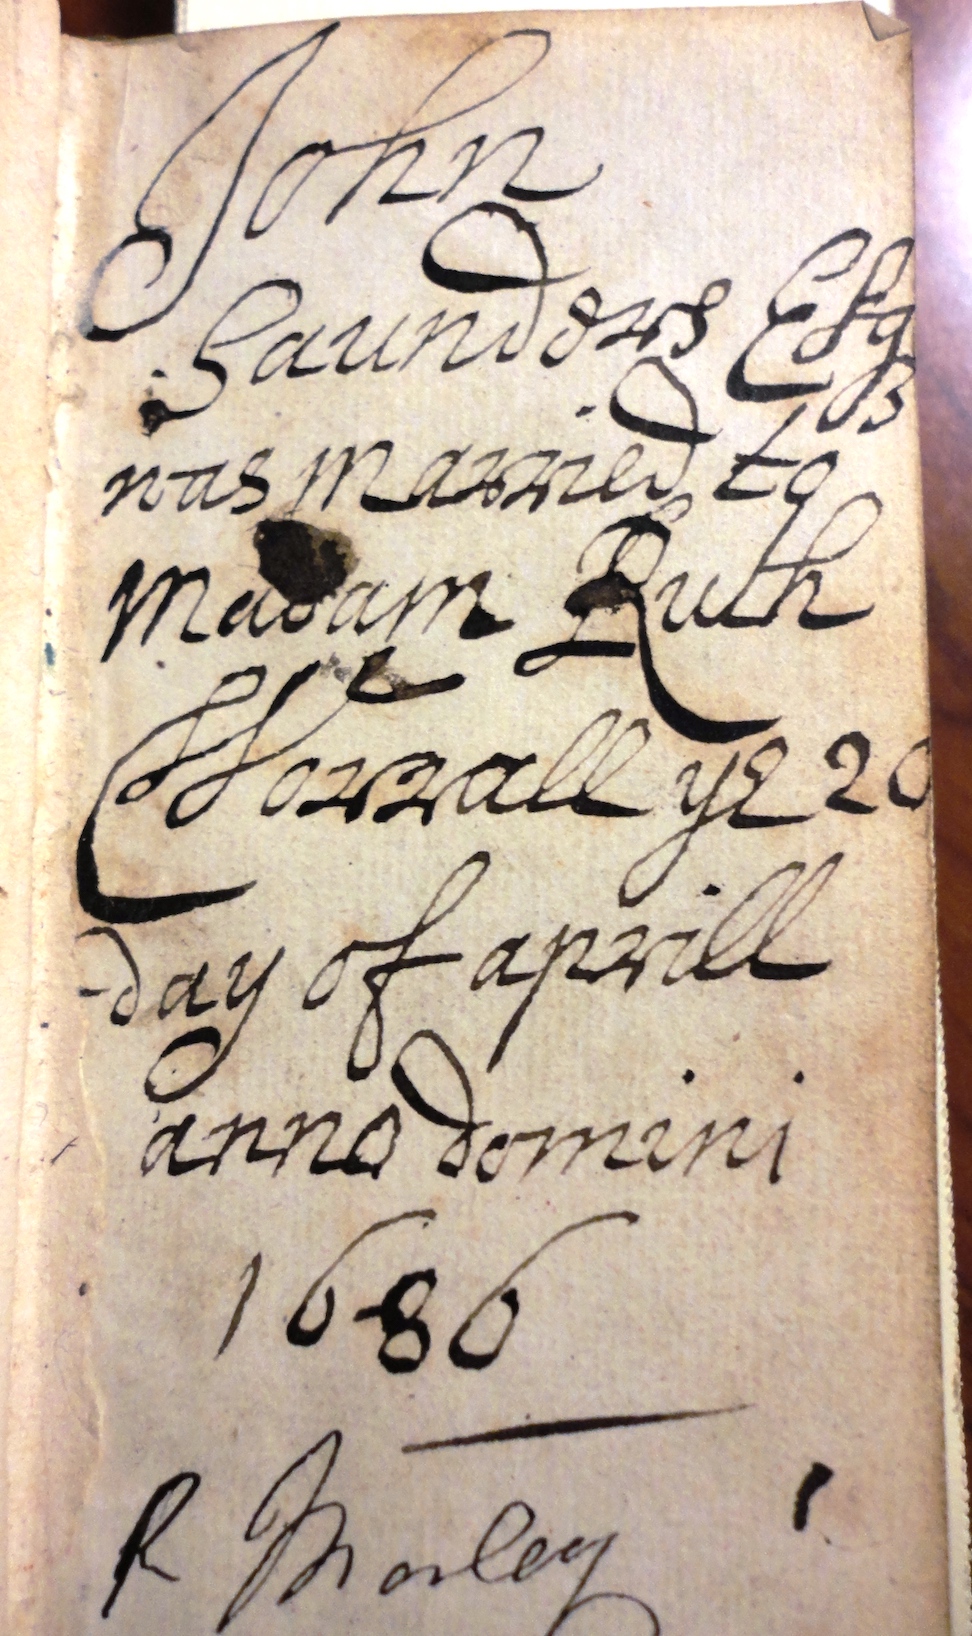 John
Saunders Esqr
was Married to
Madam Ruth
Worrall ye 20
day of aprill
anno domini
1686
R Morley